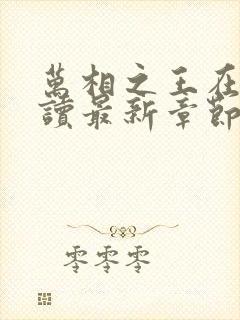 萬相之王在
讀最新章節
零零零